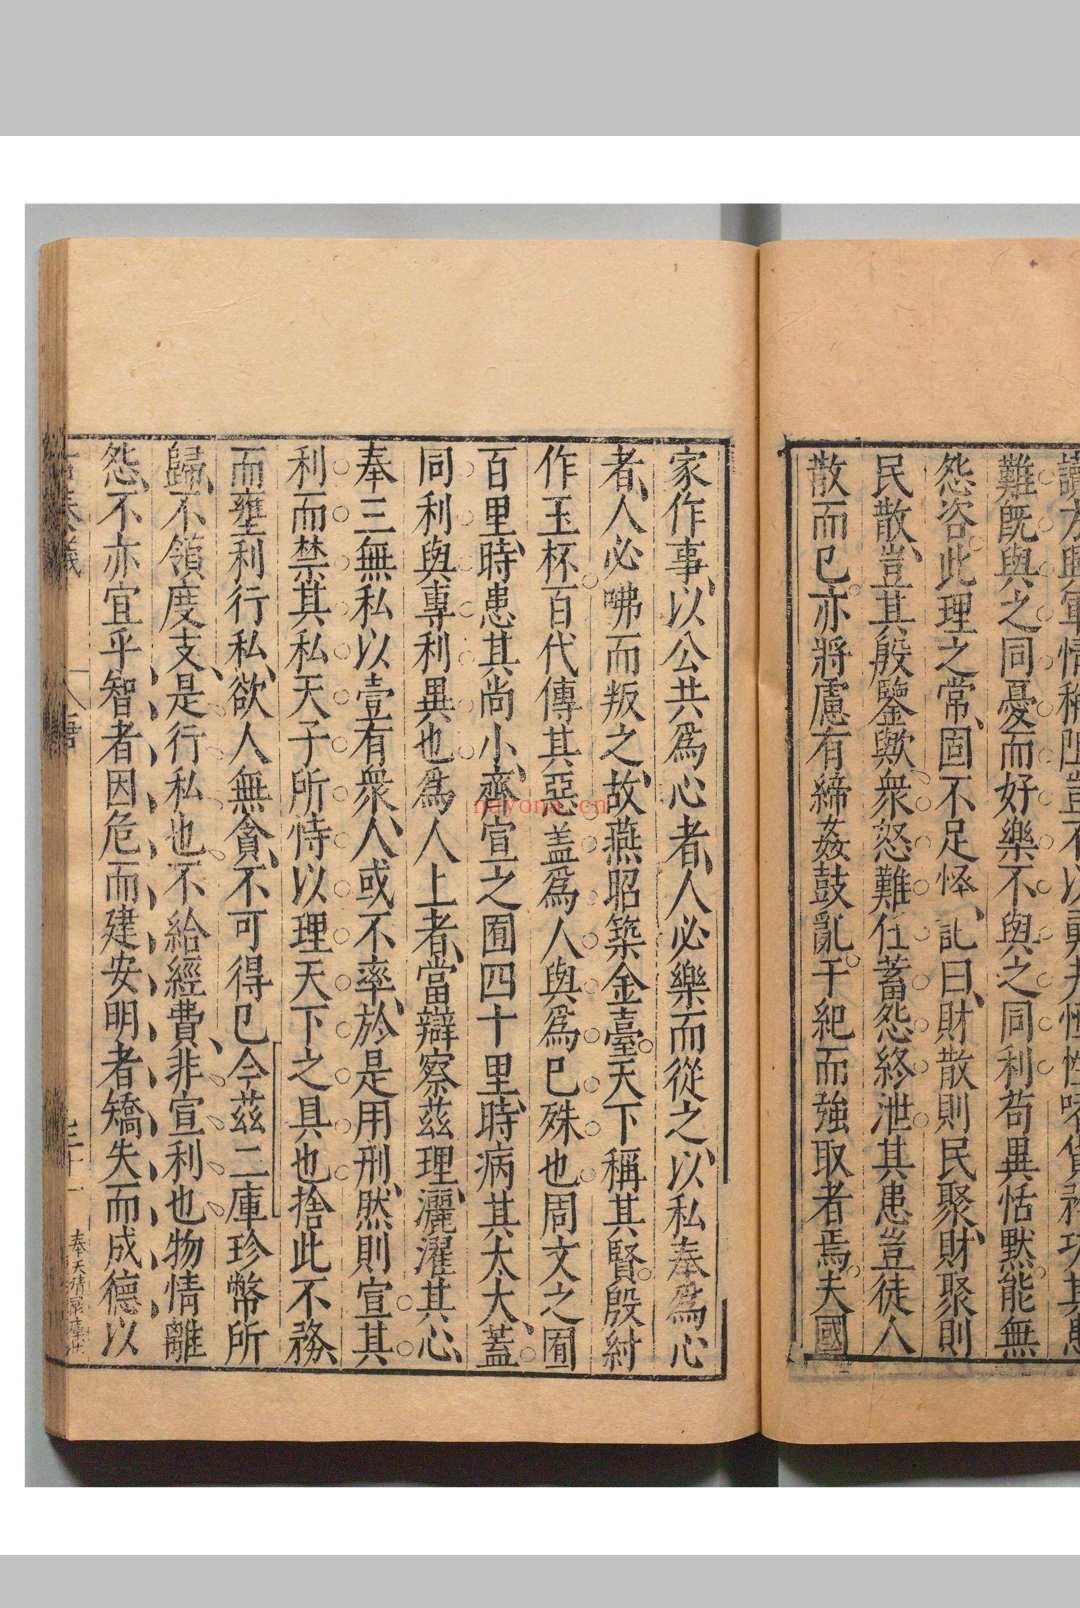 讟方興軍情稍阻豈不以勇夫恒性嗜貨矜功其患
難旣與之同憂而好樂不與之同利苟異恬黙能無
怨咨此理之常、固不足怪、記曰、財散則民聚、財聚則
民散、豈其殷鑒歟、衆怒難任、蓄怨終泄、其患豈徒人
散而已。亦將慮有締姦鼓亂。干紀而強取者焉。夫國
家作事、以公共爲心者、人必樂而從之、以私奉爲心
者、人必咈而叛之、故燕昭築金臺。天下稱其賢。殷紂
作玉杯。百代傳其惡、蓋爲人與爲已殊也周文之囿
百里、時患其尚小、齊宣之囿四十里、時病其太大、蓋
同利與專利異也爲人上者、當辯察茲理、灑濯其心、
奉三無私以壹有衆、人或不率、於是用刑、然則宣其
利而禁其私天子所恃以理天下之具也捨此不務、
而壅利行私、欲人無貪、不可得已今茲二庫珍幣所
歸、不領度支、是行私也不給經費、非宣利也物情離
怨、不亦宜乎智者因危而建安明者矯失而成德以